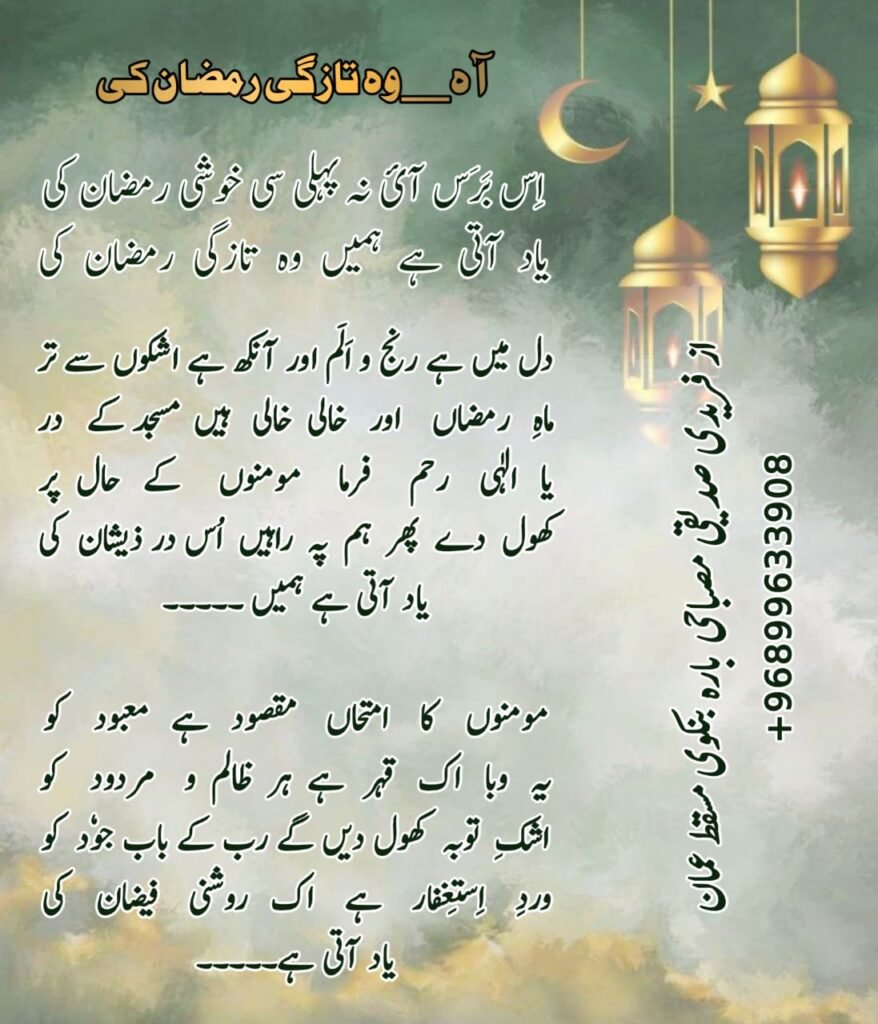 آہ__وہ تازگی رمضان کی
اِس بَرَس آئ نہ پہلی سی خوشی رمضان کی
یاد آتی ہے ہمیں وہ تازگی رمضان کی
دل میں ہے رنج و اَلَم اور آنکھ ہے اشکوں سے تر
ماہِ رمضاں اور خالی خالی ہیں مسجد کے در
یا الٰہی رحم فرما مومنوں کے حال پر
کھول دے پھر ہم پہ راہیں اُس در ذیشان کی
یاد آتی ہے ہمیں -----
مومنوں کا امتحاں مقصود ہے معبود کو
یہ وبا اک قہر ہے ہر ظالم و مردود کو
اشکِ توبہ کھول دیں گے رب کے باب جوٗد کو
وردِ اِستِغفار ہے اک روشنی فیضان کی
یاد آتی ہے-----
از فریدی صدیقی مصباحی بارہ بنکوی مسقط عمان
+96899633908